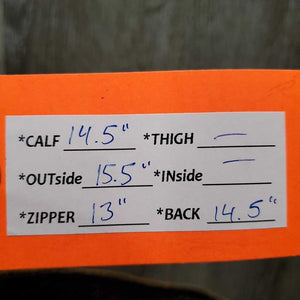 *CALF 14.5" *THIGH —
*OUTside 15.5" *INside —
*ZIPPER 13" *BACK 14.5"